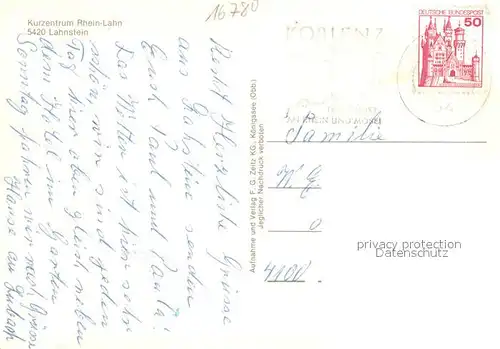 16780
Kurzentrum Rhein-Lahn
5420 Lahnstein
KOBLENZ
AN RHEIN UND MOSEL
DEUTSCHE BUNDESPOST
50
Recht Herzliche Grüsse
aus Lahnstein senden
Euch Paul und Paula!
Das Wetter ist hier sehr
schön, wir sind jeden
Tag hier oben gleich neben
dem Hotel im Garten
Sonntag fahren wir nach
Hause
Aufnahme und Verlag F. G. Zeitz KG., Königssee (Obb.)
Jeglicher Nachdruck verboten
Familie
W. E.
o
4100
privacy protection
Datenschutz